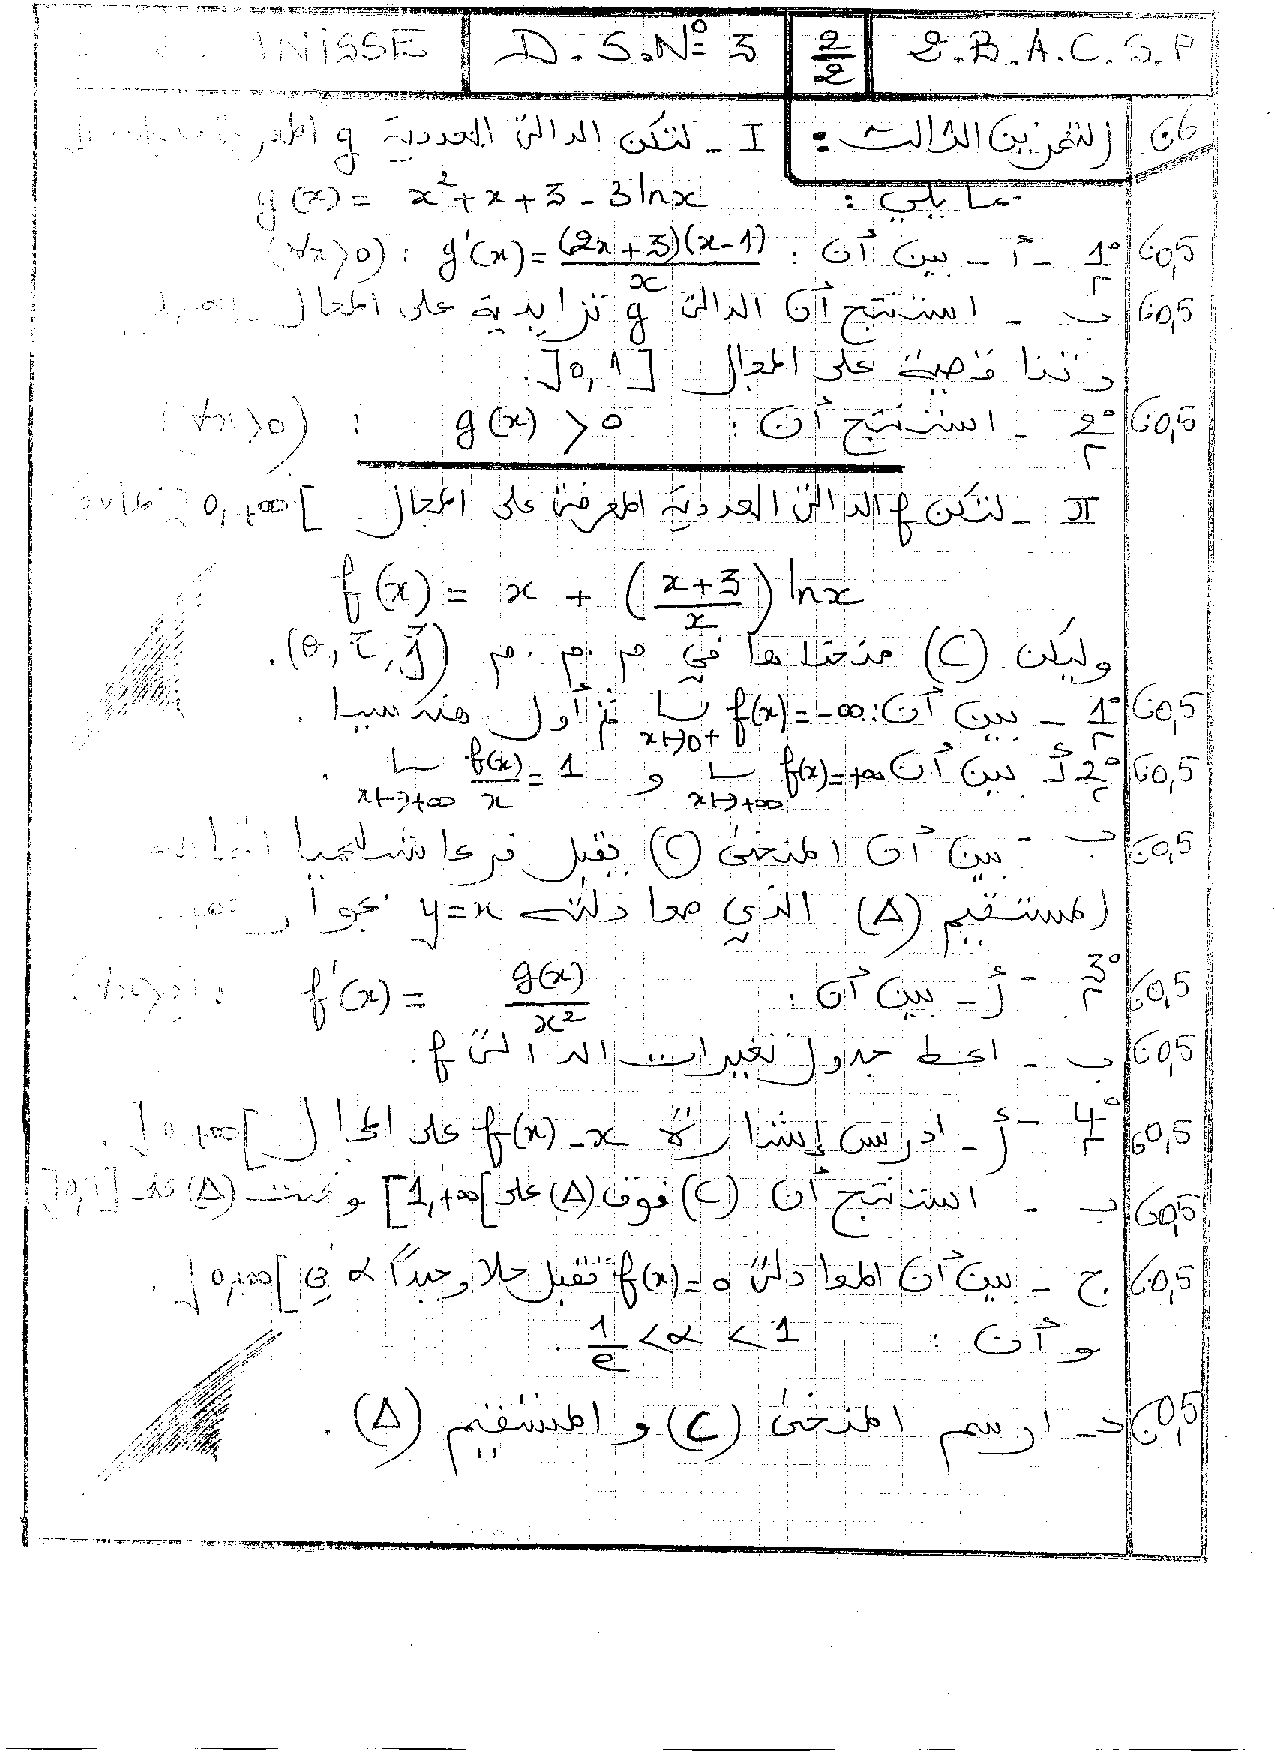 ANISSE D.S.N° 3 2/2 2.B.A.C.S.P
6ن التمرين الثالث : I - لتكن الدالة العددية g
بما يلي : g(x) = x² + x + 3 - 3lnx
0,5ن 1° - أ - بين أن : g'(x) = (2x+3)(x-1)/x : (∀x>0)
0,5ن ب - استنتج أن الدالة g تزايدية على المجال
وتناقصية على المجال ]0,1]
0,5ن 2° - استنتج أن : g(x) > 0 : (∀x>0)
II - لتكن f الدالة العددية المعرفة على المجال ]0,+∞[
f(x) = x + (x+3/x) lnx
وليكن (C) منحناها في م.م.م (O,i,j).
0,5ن 1° - بين أن : نها f(x) = -∞ x→0+ ثم أول هندسيا .
0,5ن 2° أ بين أن نها f(x) = +∞ x→+∞ و نها f(x)/x = 1 x→+∞ .
0,5ن ب - بين أن المنحنى (C) يقبل فرعا شلجميا
المستقيم (Δ) الذي معادلته y=x بجوار
0,5ن 3° - أ - بين أن : f'(x) = g(x)/x²
0,5ن ب - اعط جدول تغيرات الدالة f.
0,5ن 4° - أ - ادرس إشارة f(x)-x على المجال ]0,+∞[ .
0,5ن ب - استنتج أن (C) فوق (Δ) على [1,+∞[ و تحت (Δ) على ]0,1]
0,5ن ج - بين أن المعادلة f(x)=0 تقبل حلا وحيدا α في ]0,+∞[ .
و أن : 1/e < α < 1 .
0,5ن د - ارسم المنحنى (C) و المستقيم (Δ) .